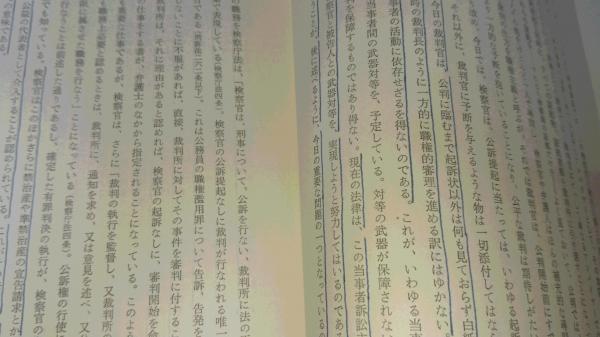 今日では、検察官は、公訴提起に当たっては、いわゆる起訴
それ以外に、裁判官に予断を与えるような物は一切添付してはなら
今日の裁判官は、公判に臨むまで起訴状以外は何も見ておらず白紙
時の裁判長のように一方的に職権的審理を進める訳にはゆかない。
事者の活動に依存せざるを得ないのである。これが、いわゆる当事
当事者間の武器対等を、予定している。対等の武器が保障されない
判を保障するものではあり得ない。現在の法律は、この当事者訴訟主
官と被告人との武器対等を、実現しようと努力してはいるのである
うことが、後に述べるように、今日の重要な問題の一つとなっているの
の職務を検察庁法は、「検察官は、刑事について、公訴を行ない、裁判所に法の正
で表現している（検察庁法四条）。検察官の公訴提起なしに裁判が行なわれる唯一
である（刑訴法二六二条以下）。これは公務員の職権濫用罪について告訴、告発を
しないことに不服があれば、直接、裁判所に対してその事件を審判に付すること
裁判所は、それに理由があると認めれば、検察官の起訴なしに、審判開始を
の仕事をする者が、弁護士のなかから指定されることになっている。このよう
要な仕事であるが、検察官は、さらに「裁判の執行を監督し、又裁判所の
務上必要と認めるときは、裁判所に、通知を求め、又は意見を述べ、又
に属させた職務を行なう」ことになっている（検察庁法四条）。公訴権の行使に
行なうことは前述した通りであるし、確定した有罪判決の執行が、検察官の
でも知っている。検察官はこのほかさらに禁治産や準禁治産の宣告請求とか
公益の代表者として介入することが認められている。
の意味である。